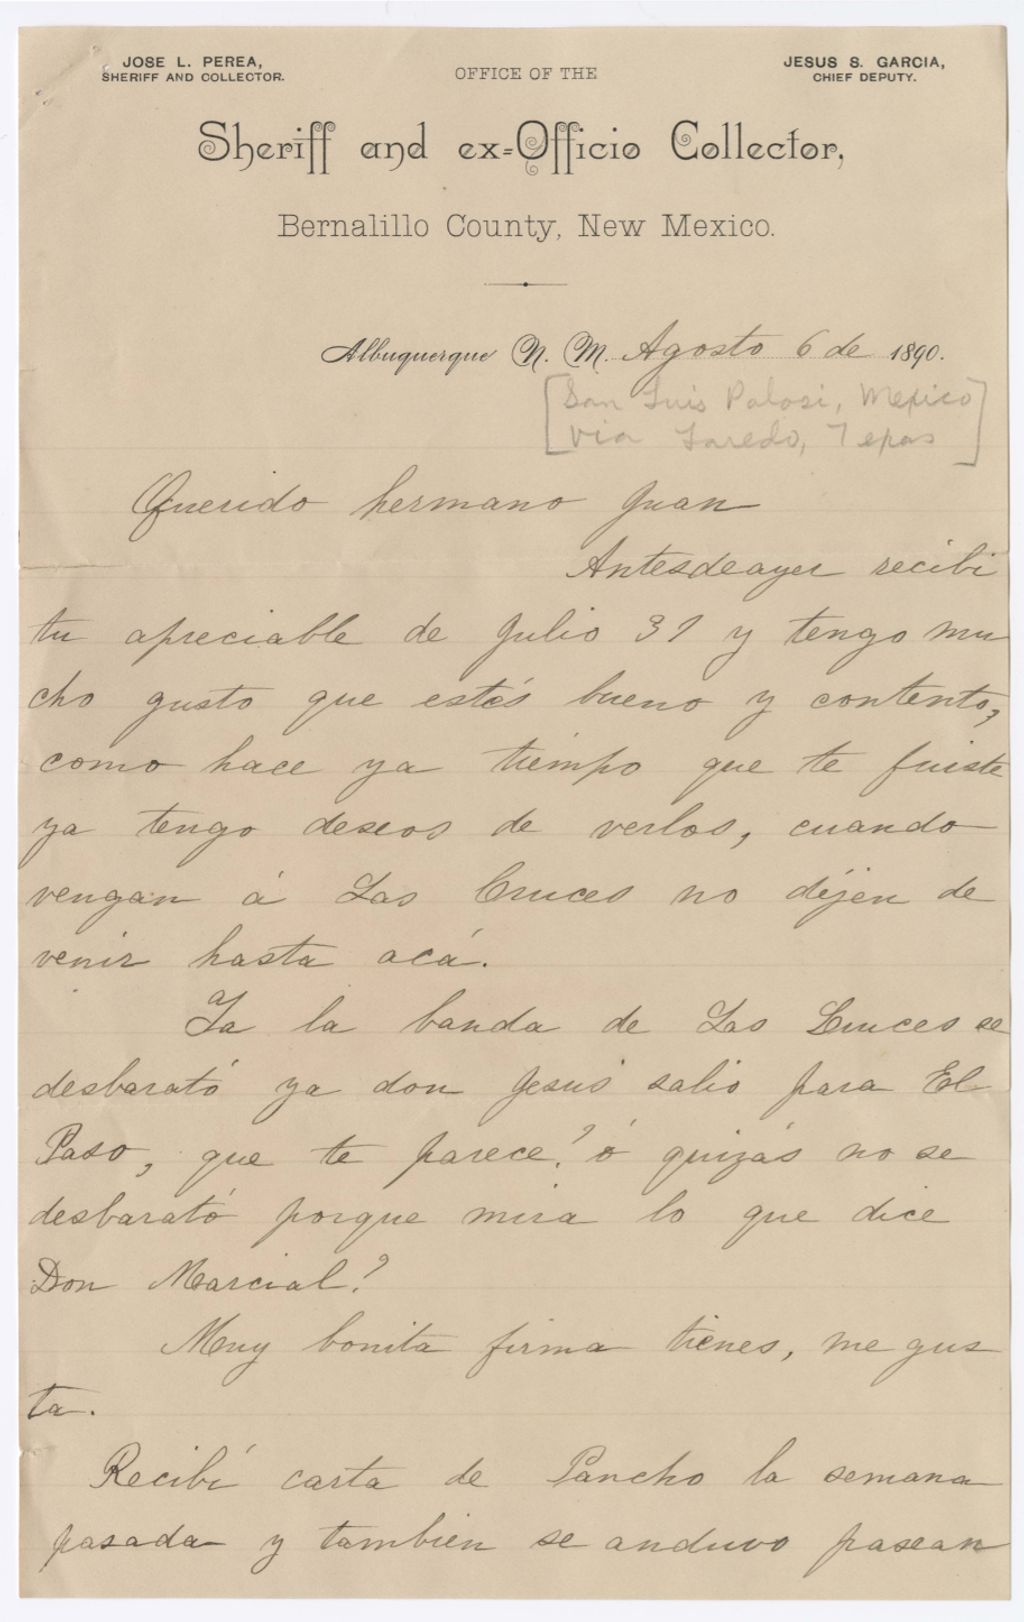 JOSE L. PEREA,
SHERIFF AND COLLECTOR.
OFFICE OF THE
JESUS S. GARCIA,
CHIEF DEPUTY.
Sheriff and ex=Officio Collector,
Bernalillo County, New Mexico.
Albuquerque N. M. Agosto 6 de 1890.
[San Luis Potosi, Mexico
via Laredo, Texas]
Querido hermano Juan
Antesdeayer recibi
tu apreciable de Julio 31 y tengo mu
cho gusto que estés bueno y contento,
como hace ya tiempo que te fuiste
ya tengo deseos de verlos, cuando
vengan á Las Cruces no déjen de
venir hasta acá.
Ya la banda de Las Cruces se
desbarató ya don Jesus salio para El
Paso, que te parece? ó quizás no se
desbarató porque mira lo que dice
Don Marcial?
Muy bonita firma tienes, me gus
ta.
Recibí carta de Pancho la semana
pasada y tambien se anduvo pasean